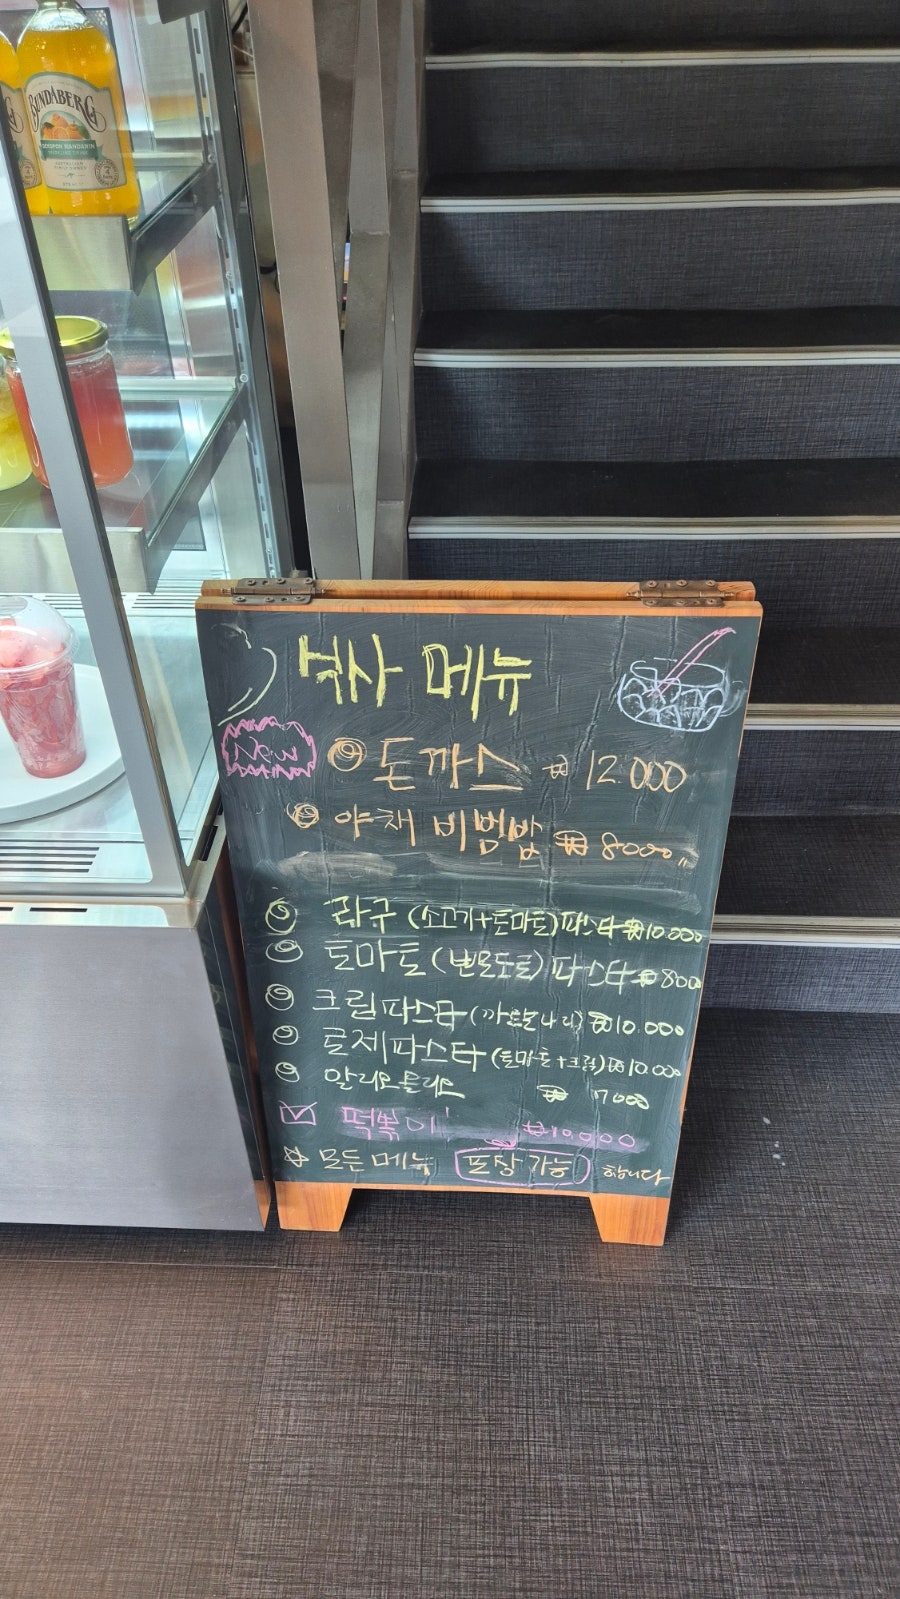 BUNDABERG
식사 메뉴
New
돈까스 ₩ 12.000
야채 비빔밥 ₩ 8000
라구 (소고기+토마토)파스타 ₩10.000
토마토 (뽀모도로) 파스타 ₩800
크림파스타 (까르보나라) ₩10.000
로제파스타 (토마토+크림) ₩10.000
알리오올리오 ₩ 7000
떡볶이 ₩10.000
모든메뉴 포장가능 합니다